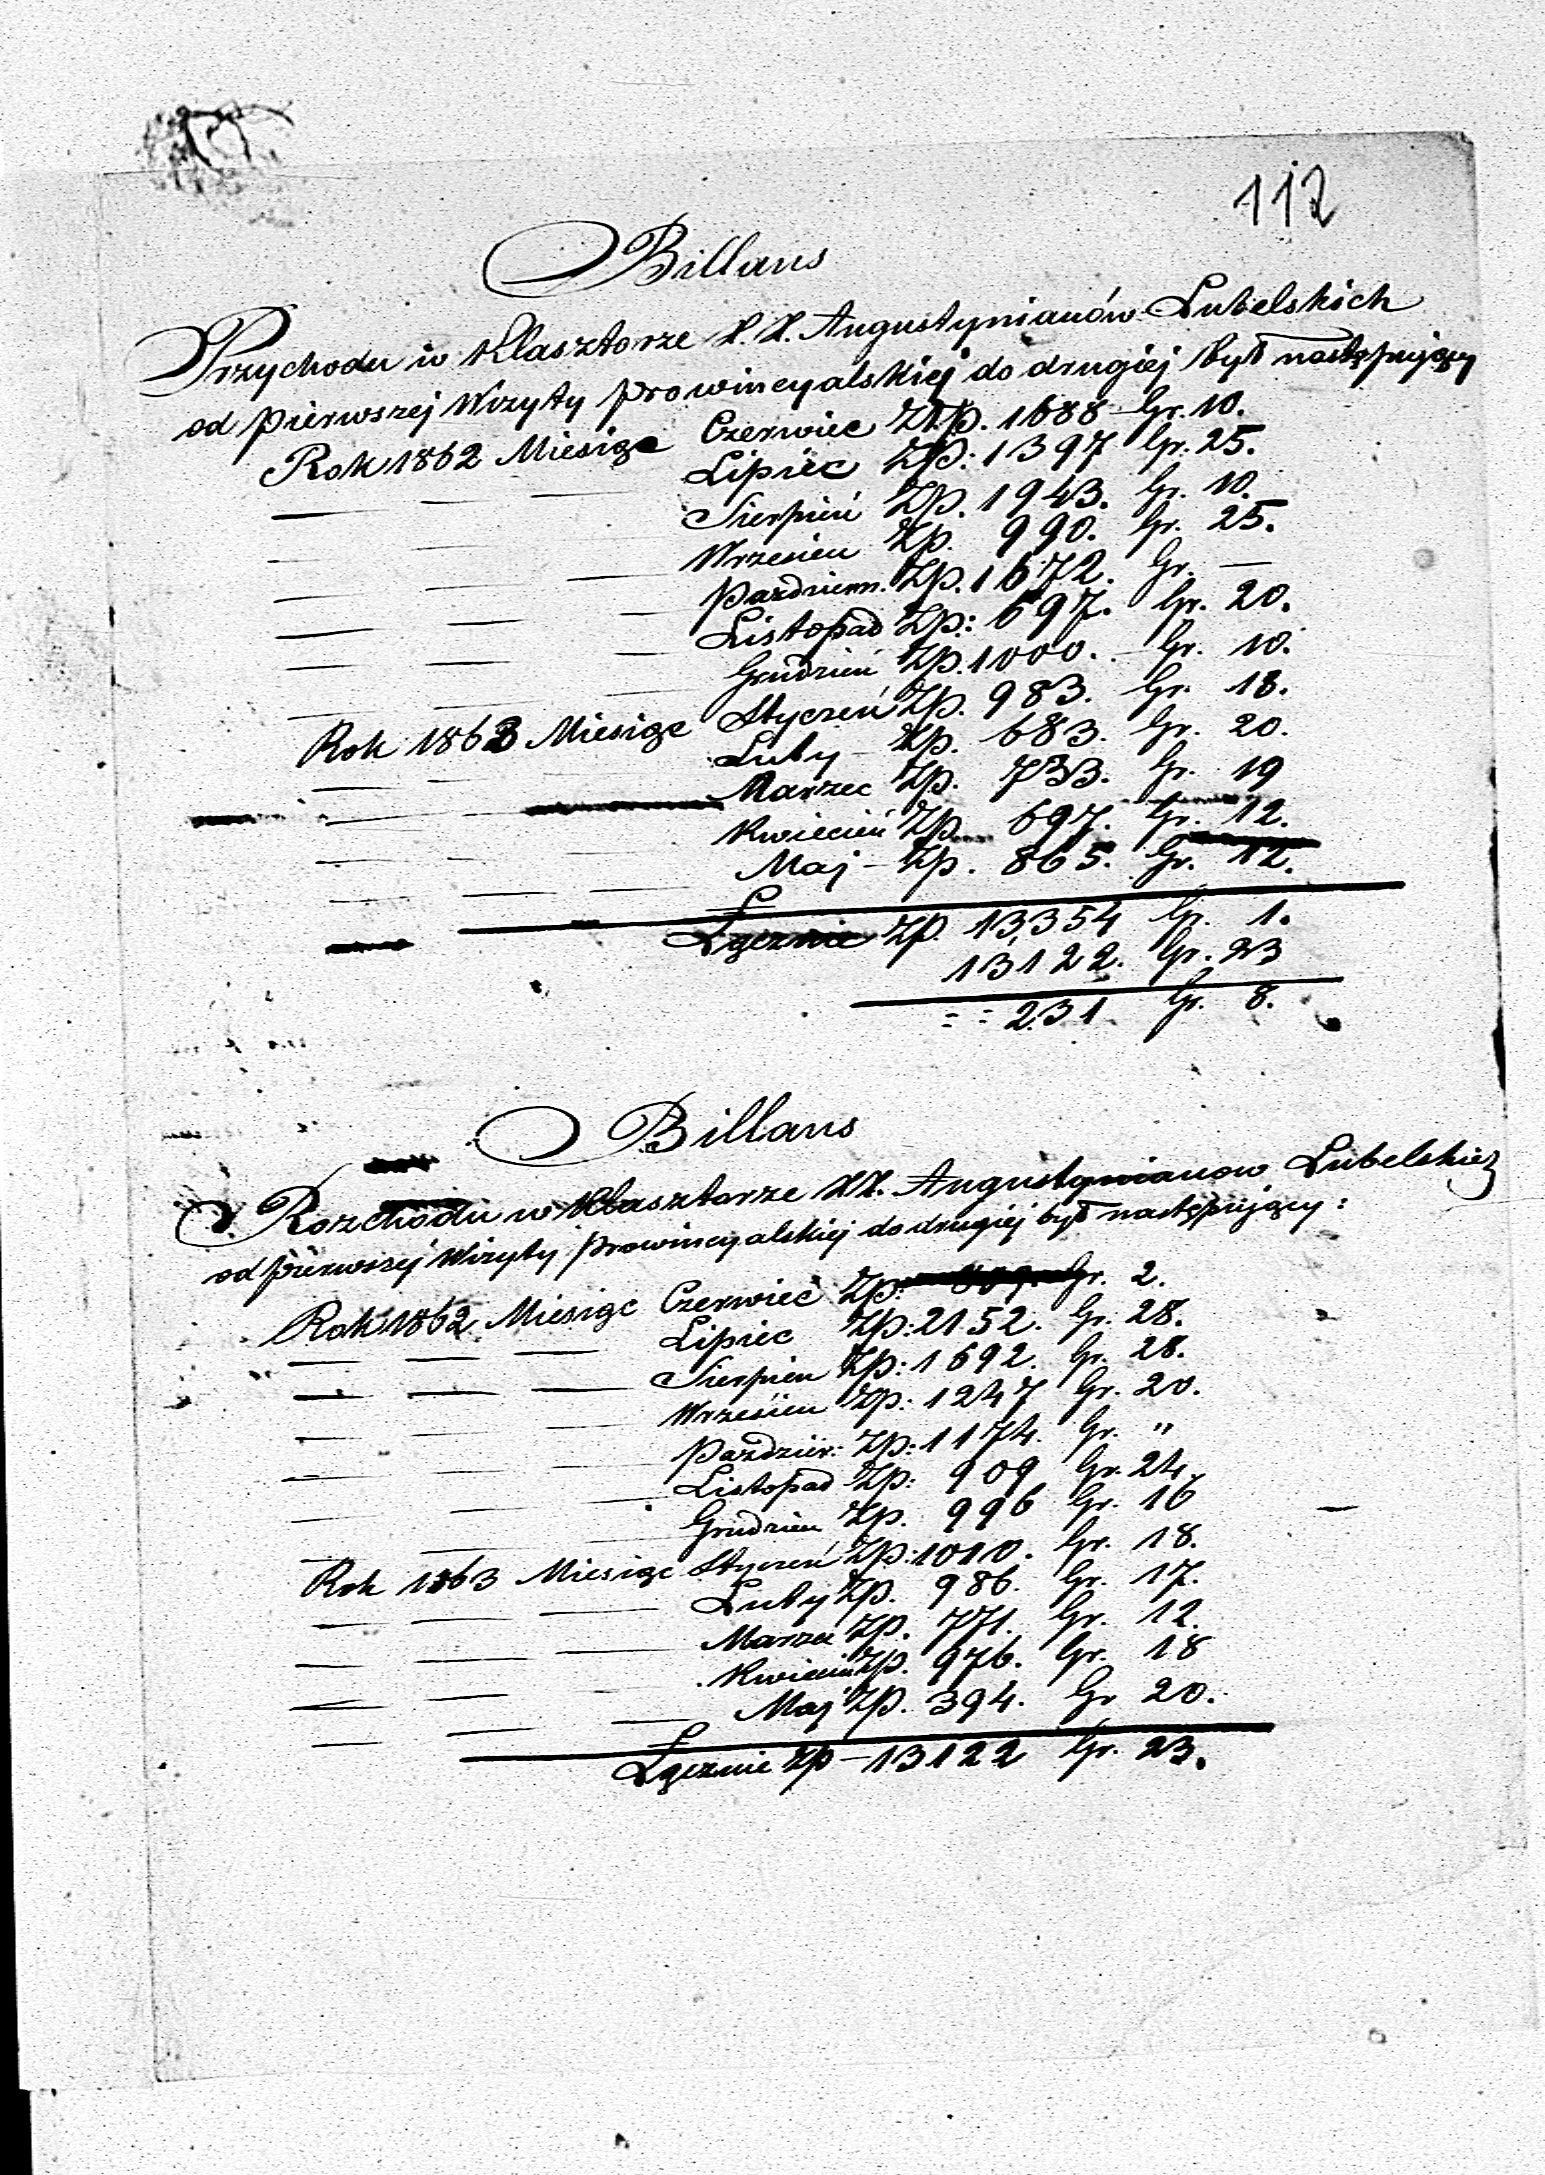 112
Billans
Przychodu w Klasztorze X. X. Augustynianów Lubelskich
od pierwszej Wizyty prowincyalskiej do drugiej był następujący
Rok 1862 Miesiąc Czerwiec Złp. 1688 Gr. 10.
Lipiec Zp: 1397 Gr. 25.
Sierpień Zp. 1943. Gr. 10.
Wrzesien Zp. 990. Gr. 25.
Pazdziern. Zp. 1672. Gr. —
Listopad Zp: 697. Gr. 20.
Grudzień Zp. 1000. Gr. 10.
Rok 1863 Miesiąc Styczeń Zp. 983. Gr. 18.
Luty – Zp. 683. Gr. 20.
Marzec Zp. 733. Gr. 19
Kwiecień Zp. 697. Gr. 12.
Maj – Zp. 865. Gr. 12.
Łącznie Zp. 13354 Gr. 1.
13122. Gr. 23
= = 231 Gr. 8.
Billans
Rozchodu w Klasztorze XX. Augustynianow Lubelskich
od pierwszej Wizyty prowincyalskiej do drugiej był następujący:
Rok 1862 Miesiąc Czerwiec Zp: Gr. 2.
Lipiec Zp: 2152. Gr. 28.
Sierpien Zp: 1692. Gr. 28.
Wrzesień Zp: 1247 Gr. 20.
Pazdzier: Zp: 1174. Gr. "
Listopad Zp: 909 Gr. 24.
Grudzien Zp. 996 Gr. 16
Rok 1863 Miesiąc Styczeń Zp: 1010. Gr. 18.
Luty Zp. 986. Gr. 17.
Marzec Zp. 771. Gr. 12.
Kwiecień Zp. 976. Gr. 18
Maj Zp. 394. Gr 20.
Łącznie Zp – 13122 Gr. 23.